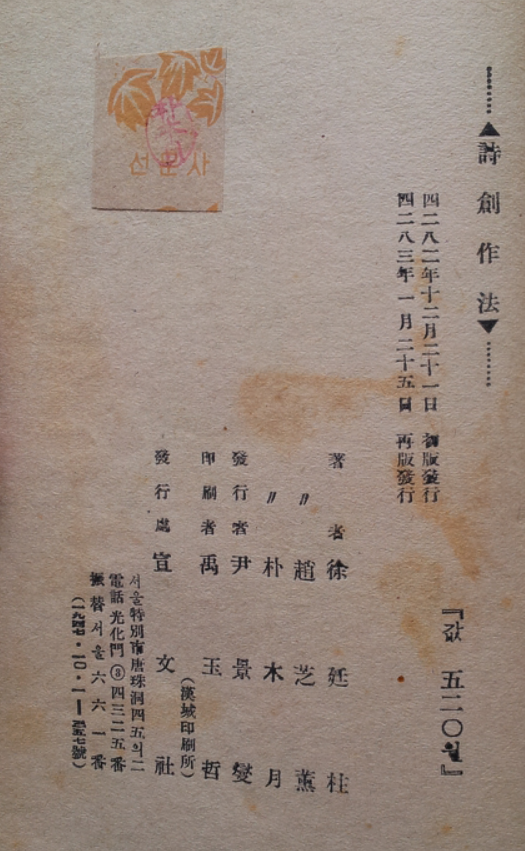 ▲詩創作法▼
『값 五二〇원』
四二八二年十二月二十一日 初版發行
四二八三年一月二十五日 再版發行
著者 徐廷柱
〃 趙芝薰
〃 朴木月
發行者 尹景燮
印刷者 禹玉哲
(漢城印刷所)
發行處 宣文社
서울特別市唐珠洞四五의二
電話 光化門 ③ 四三二五番
振替 서울 六六一番
선문사